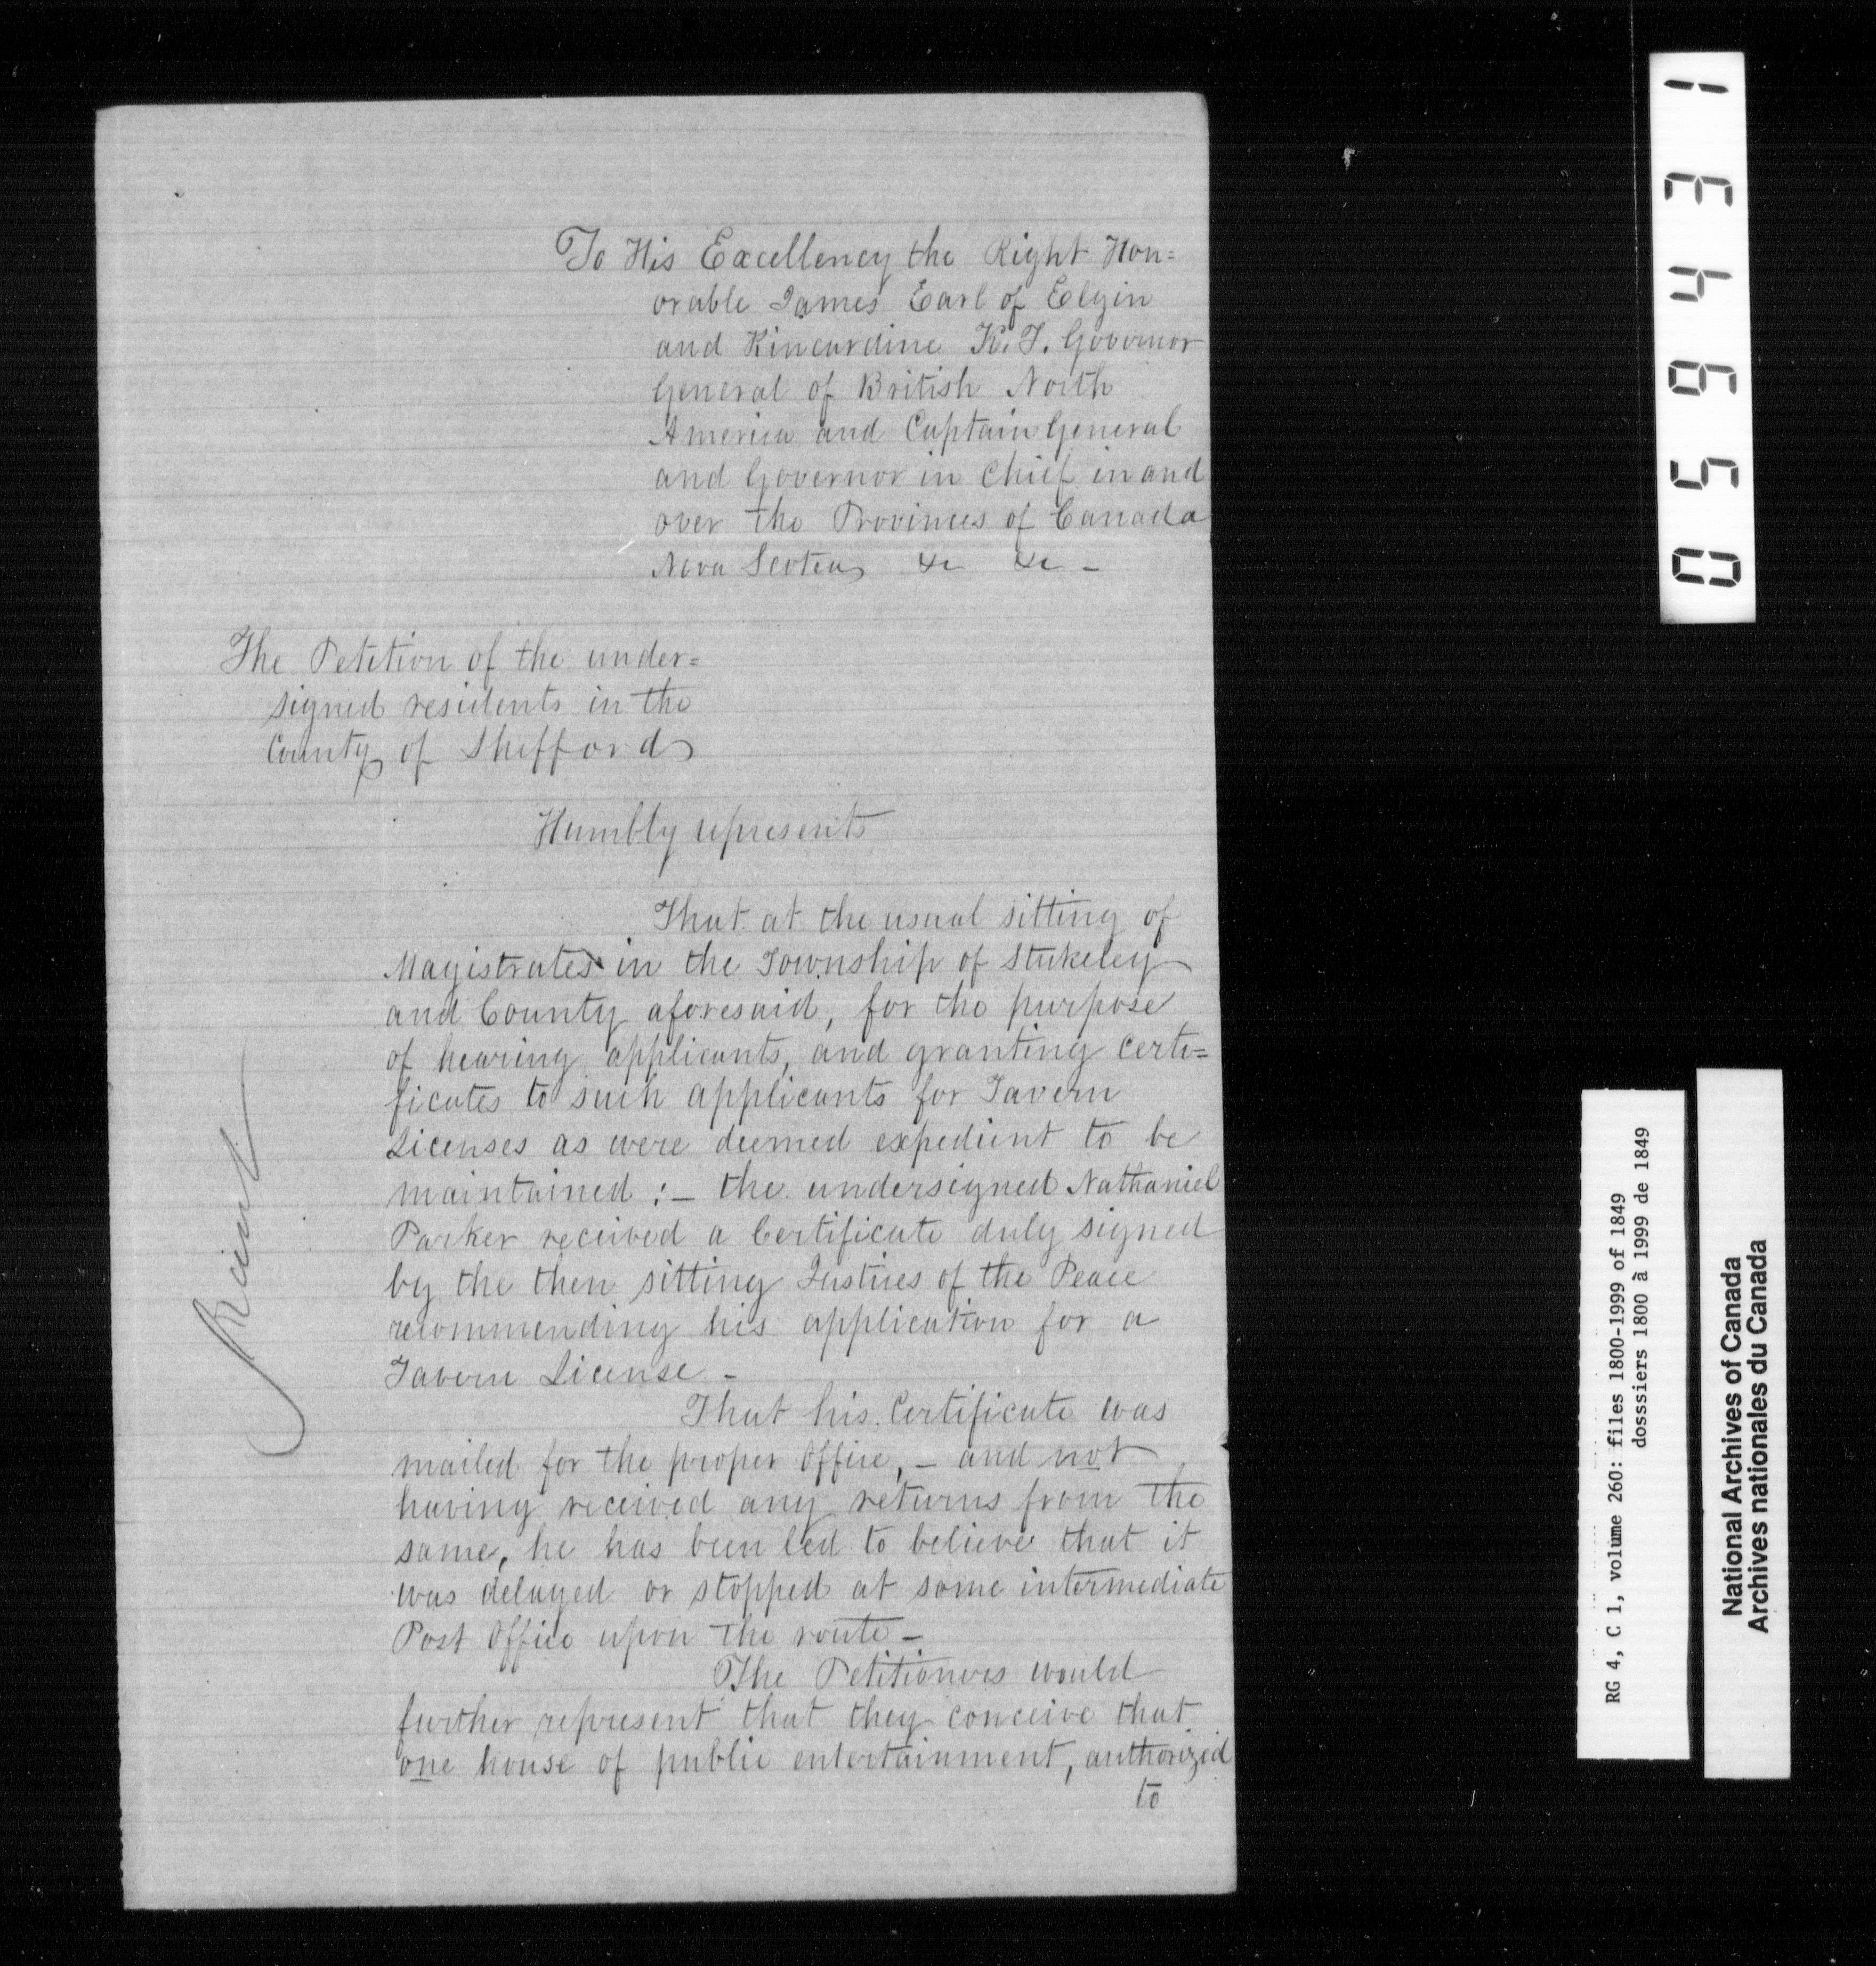 To His Excellency the Right Hon=
orable James Earl of Elgin
and Kincardine K.T. Governor
General of British North
America and Captain General
and Governor in Chief in and
over the Provinces of Canada
Nova Scotia &c &c -
The Petition of the under=
signed residents in the
County of Shefford
Humbly represents
That at the usual sitting of
Magistrates in the Township of Stukeley
and County aforesaid, for the purpose
of hearing applicants, and granting certi=
ficates to such applicants for Tavern
Licenses as were deemed expedient to be
maintained :- the undersigned Nathaniel
Parker received a Certificate duly signed
by the then sitting Justices of the Peace
recommending his application for a
Tavern License -
That his Certificate was
mailed for the proper Office, - and not
having received any returns from the
same, he has been led to believe that it
was delayed or stopped at some intermediate
Post Office upon the route -
The Petitioners would
further represent that they conceive that
one house of public entertainment, authorized
to
054631
RG 4, C 1, volume 260: files 1800-1999 of 1849
dosssiers 1800 à 1999 de 1849
National Archives of Canada
Archives nationales du Canada